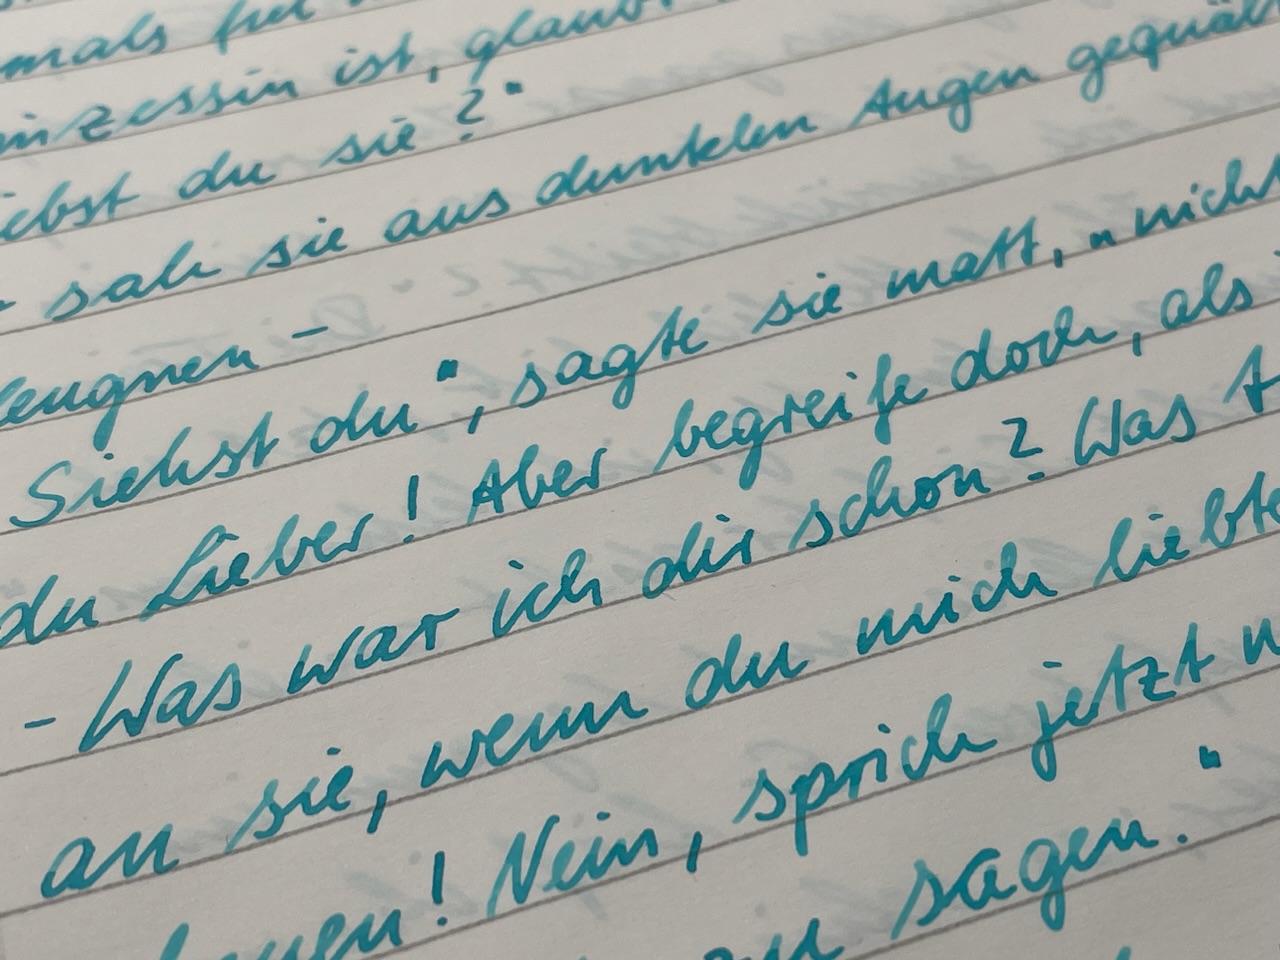 mals frei
inzessin ist, glaub
iebst du sie?"
sah sie aus dunkelen Augen gequäl
leugnen –
Siehst du", sagte sie matt, „nicht
du Lieber! Aber begreife doch, als
– Was war ich dir schon? Was t
an sie, wenn du mich liebte
! Nein, sprich jetzt n
sagen."